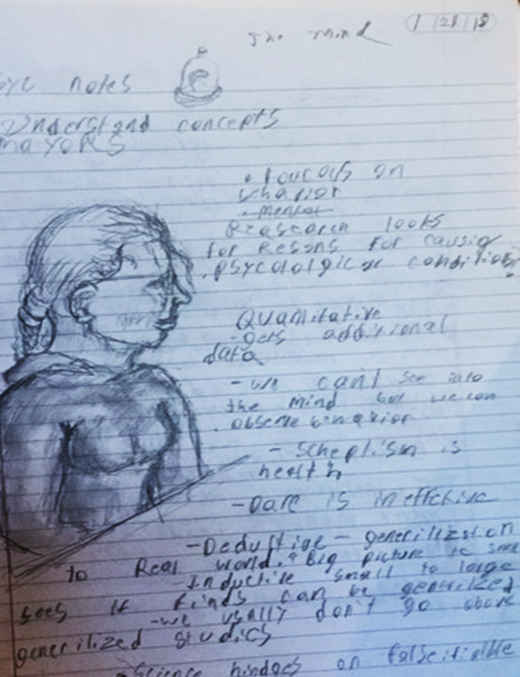 The mind
1/21/19
psyc notes
Understand concepts
mayors
• Foucous on
behavior
• mental
Reasearch looks
for Resons for causing
. psycololgicor conditions
Quanitative
- gets additional
data
- we can't see into
the mind but we can
observe behavior
- scheptism is
health
- Dare is ineffctive
- Deduftive - generilization
to Real world. • Big picture to small
- Inductive small to large
sees if finds can be genrilized
- we usally don't go above
generilized studies
• Science hindges on falseifible